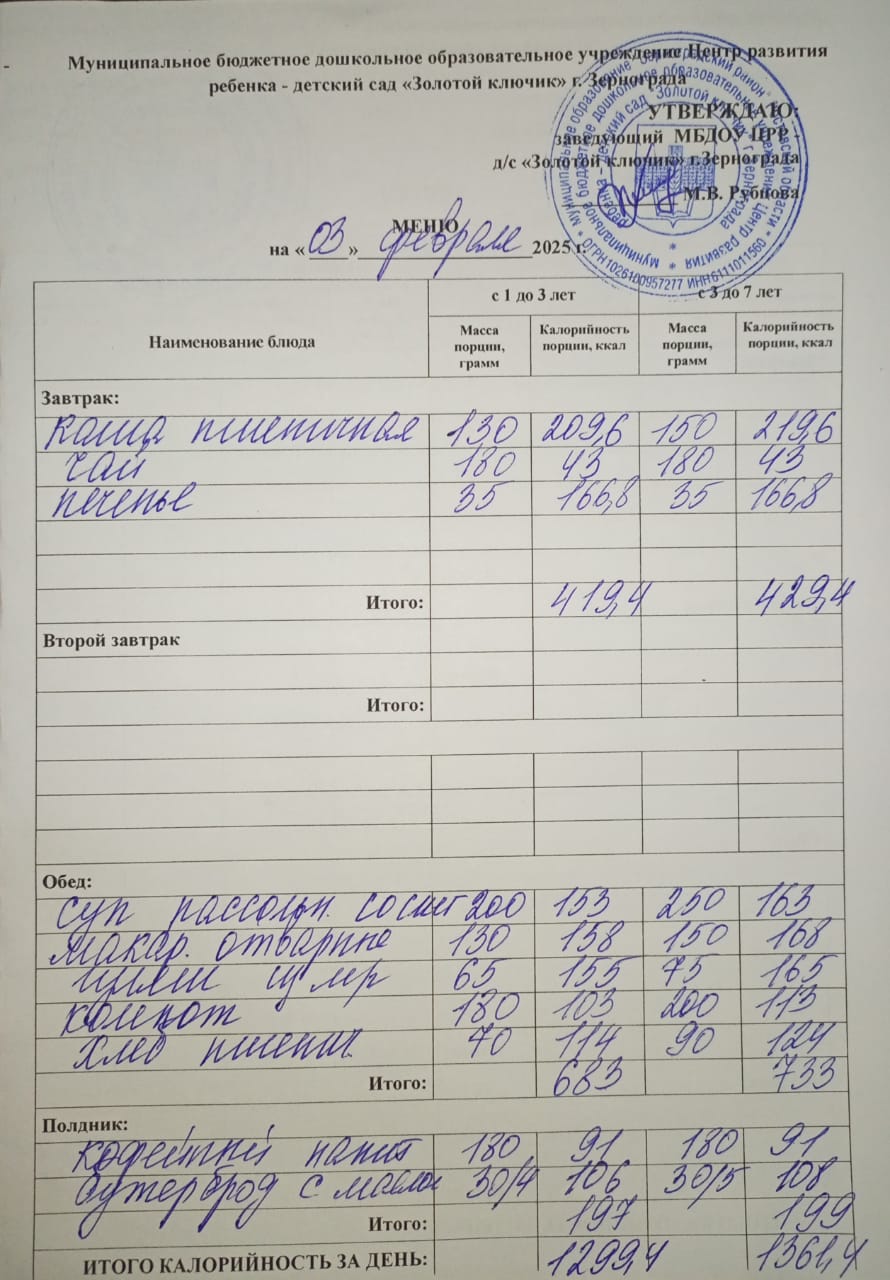 Муниципальное бюджетное дошкольное образовательное учреждение Центр развития
ребенка - детский сад «Золотой ключик» г. Зернограда
УТВЕРЖДАЮ:
заведующий МБДОУ ЦРР -
д/с «Золотой ключик» г.Зернограда
М.В. Рубцова
ОГРН 1026100957277 ИНН 6111011560
МЕНЮ
на « 03 » февраля 2025 г.
Наименование блюда с 1 до 3 лет с 3 до 7 лет
Масса порции, грамм Калорийность порции, ккал Масса порции, грамм Калорийность порции, ккал
Завтрак:
каша пшеничная 130 209,6 150 219,6
чай 180 43 180 43
печенье 35 166,8 35 166,8
Итого: 419,4 429,4
Второй завтрак
Итого:
Обед:
суп рассольн. 200 153 250 163
макар. отварные 130 158 150 168
65 155 75 165
компот 180 103 200 113
хлеб пшенич. 70 114 90 124
Итого: 683 733
Полдник:
кофейный напит 180 91 180 91
бутерброд с маслом 30/4 106 30/5 108
Итого: 197 199
ИТОГО КАЛОРИЙНОСТЬ ЗА ДЕНЬ: 1299,4 1361,4